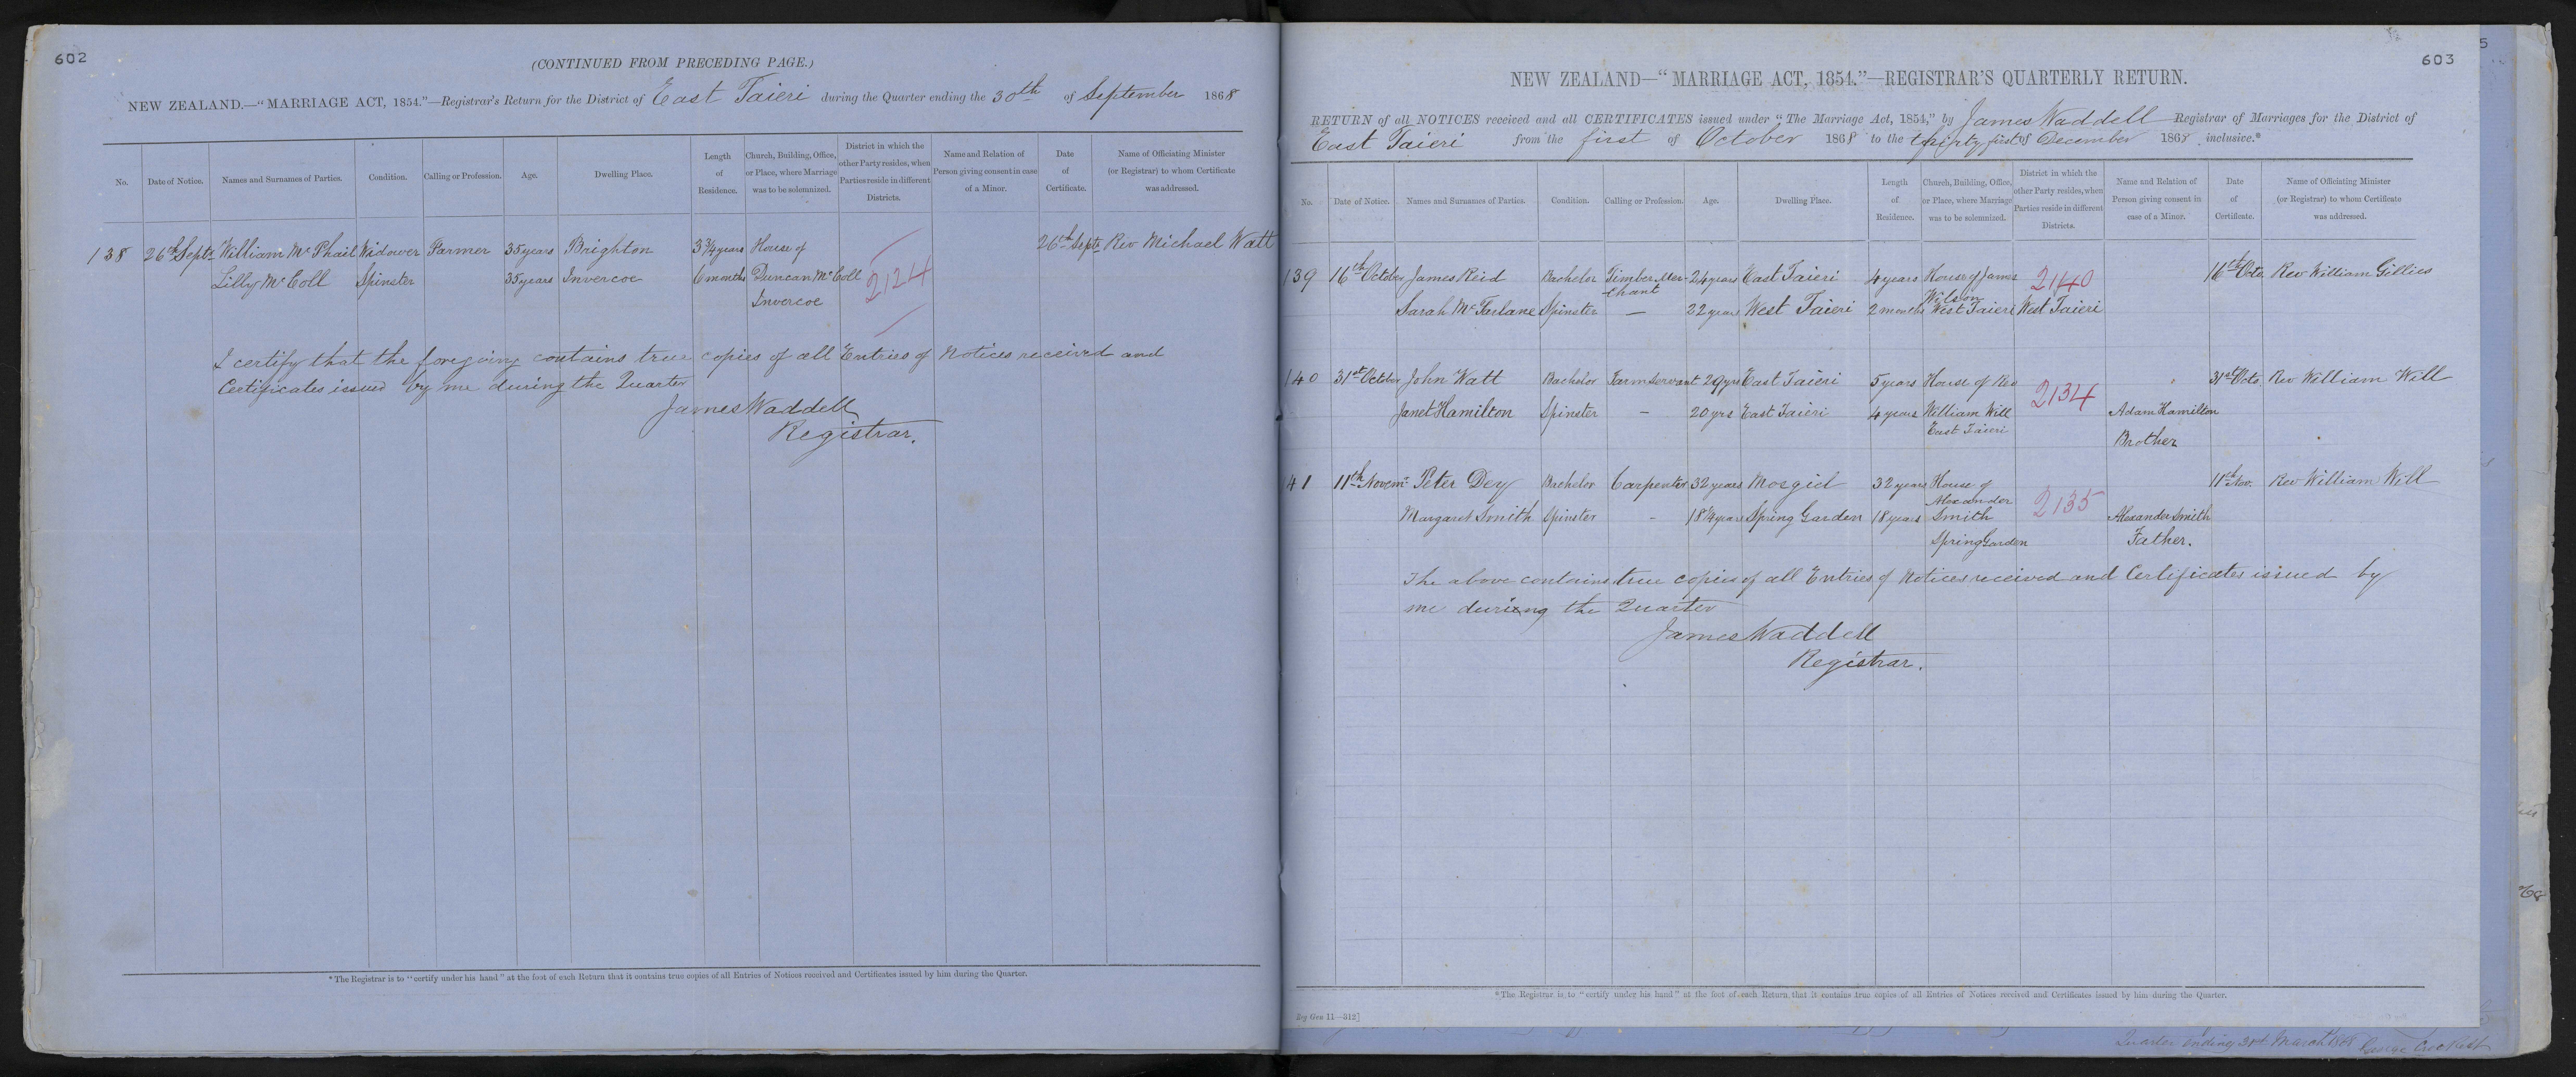 602
(CONTINUED FROM PRECEDING PAGE.)
NEW ZEALAND.—"MARRIAGE ACT, 1854."—Registrar's Return for the District of East Taieri during the Quarter ending the 30th of September 1868
No. Date of Notice. Names and Surnames of Parties. Condition. Calling or Profession. Age. Dwelling Place. Length of Residence. Church, Building, Office, or Place, where Marriage was to be solemnized. District in which the other Party resides, when Parties reside in different Districts. Name and Relation of Person giving consent in case of a Minor. Date of Certificate. Name of Officiating Minister (or Registrar) to whom Certificate was addressed.
138 26th Septr William McPhail Widower Farmer 35 years Brighton 3 3/4 years House of 26th Septr Rev Michael Watt
Lilly McColl Spinster 35 years Invercoe 6 months Duncan McColl 2124
Invercoe
I certify that the foregoing contains true copies of all Entries of Notices received and
Certificates issued by me during the Quarter
James Waddell
Registrar.
*The Registrar is to "certify under his hand" at the foot of each Return that it contains true copies of all Entries of Notices received and Certificates issued by him during the Quarter.
603
5
NEW ZEALAND—"MARRIAGE ACT, 1854."—REGISTRAR'S QUARTERLY RETURN.
RETURN of all NOTICES received and all CERTIFICATES issued under "The Marriage Act, 1854," by James Waddell Registrar of Marriages for the District of
East Taieri from the first of October 1868 to the thirty first of December 1868 inclusive.*
No. Date of Notice. Names and Surnames of Parties. Condition. Calling or Profession. Age. Dwelling Place. Length of Residence. Church, Building, Office, or Place, where Marriage was to be solemnized. District in which the other Party resides, when Parties reside in different Districts. Name and Relation of Person giving consent in case of a Minor. Date of Certificate. Name of Officiating Minister (or Registrar) to whom Certificate was addressed.
139 16th October James Reid Bachelor Timber Mer- 24 years East Taieri 4 years House of James 2140 16th Octo. Rev William Gillies
chant Wilson
Sarah McFarlane Spinster — 22 years West Taieri 2 months West Taieri West Taieri
140 31st October John Watt Bachelor Farm Servant 29 yrs East Taieri 5 years House of Rev 2134 31st Octo. Rev William Will
Janet Hamilton Spinster — 20 yrs East Taieri 4 years William Will Adam Hamilton
East Taieri Brother
41 11th Novemr Peter Dey Bachelor Carpenter 32 years Mosgiel 32 years House of 11th Nov. Rev William Will
Alexander 2135
Margaret Smith Spinster — 18 1/4 years Spring Garden 18 years Smith Alexander Smith
Spring Garden Father.
The above contains true copies of all Entries of Notices received and Certificates issued by
me during the Quarter
James Waddell
Registrar.
*The Registrar is to "certify under his hand" at the foot of each Return that it contains true copies of all Entries of Notices received and Certificates issued by him during the Quarter.
Reg Gen 11—312]
Quarter ending 31st March 1868 George Crockett
68